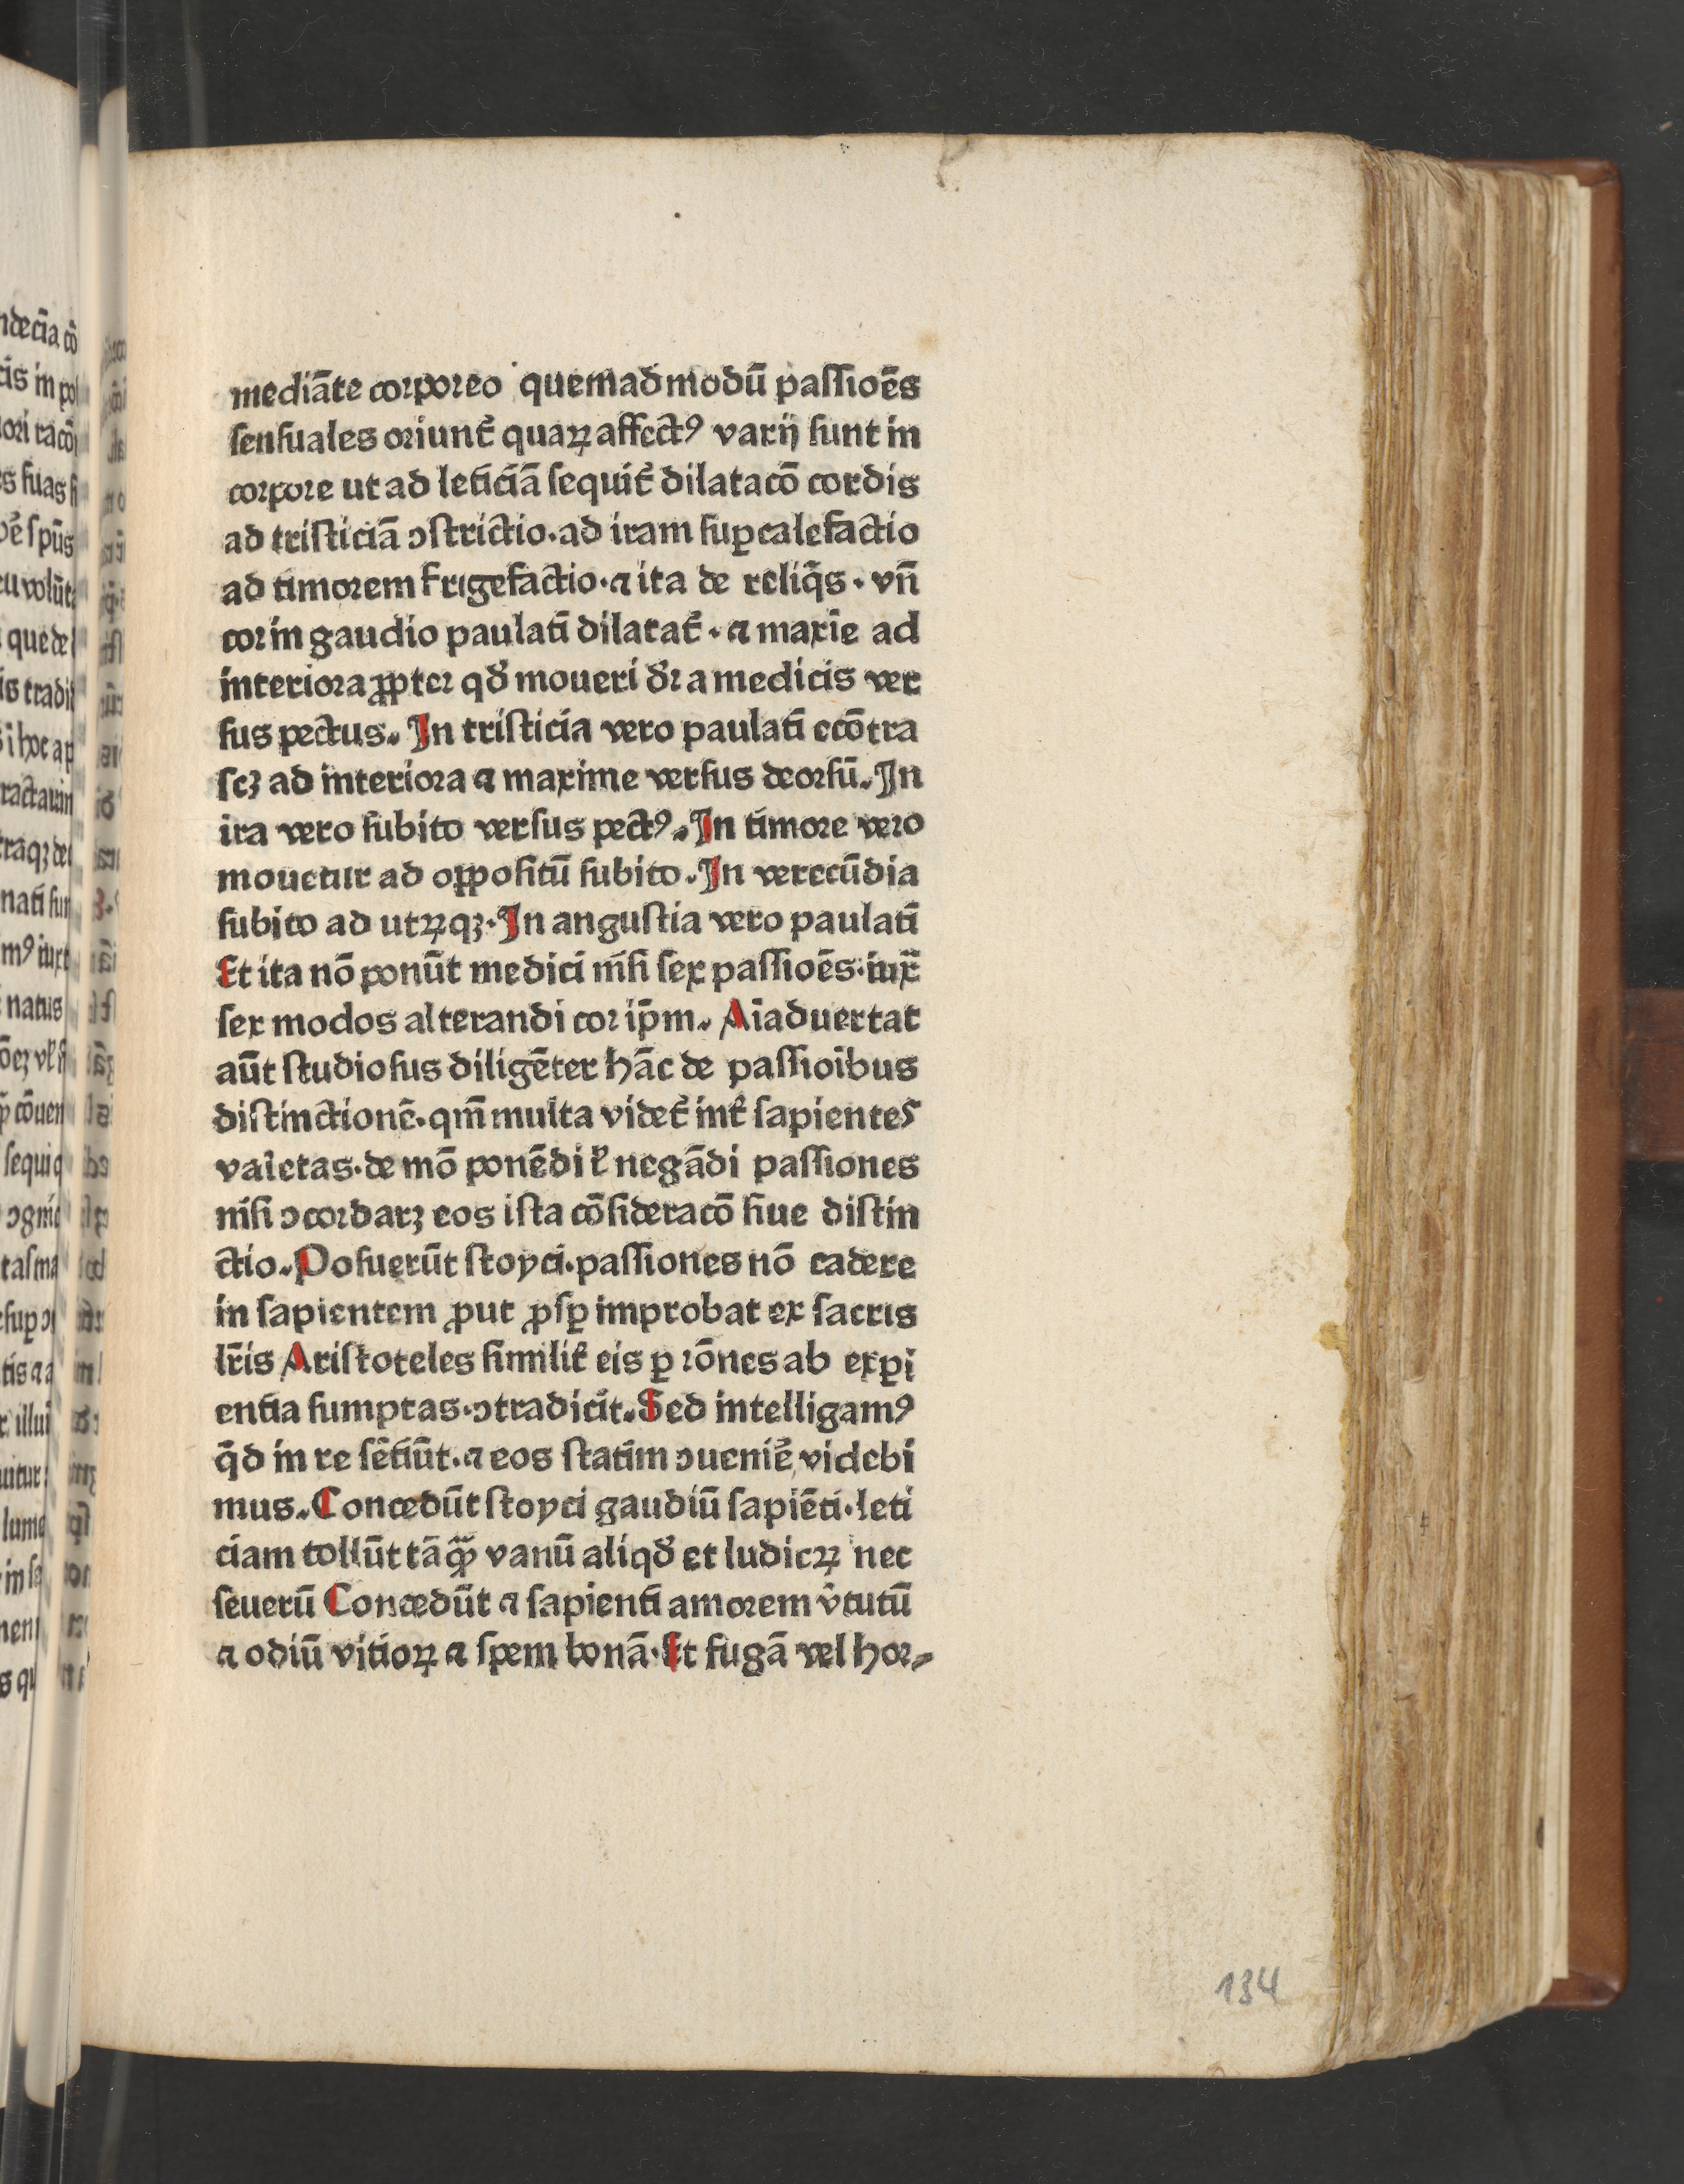 mediāte corporeo quemadmodū paſſioēs
ſenſuales oriunt᷑ quaꝝ affectꝰ varij ſunt in
corpore ut ad leticiā ſequit᷑ dilatacō cordis
ad triſticiā ↄſtrictio. ad iram ſuꝑcalefactio
ad timorem frigefactio. ⁊ ita de reliq̄s. vn̄
cor in gaudio paulatī dilatat᷑. ⁊ maxīe ad
interiora ꝓpter qd̛ moueri dr̛ a medicis ver
ſus pectus. In triſticia vero paulatī ecōtra
ſcꝫ ad interiora ⁊ maxime verſus deorſū. In
ira vero ſubito verſus pectꝰ. In timore vero
mouetur ad oppoſitū ſubito. In verecūdia
ſubito ad utꝝqꝫ. In anguſtia vero paulatī
Et ita nō ponūt medici niſi ſex paſſioēs. iux̄
ſex modos alterandi cor ip̄m. Aīaduertat
aūt ſtudioſus diligēter hāc de paſſioībus
diſtinctionē. qm̄ multa videt᷑ int᷑ ſapientes
varietas. de mō ponēdi ł negādi paſſiones
niſi ↄcordarꝫ eos iſta cōſideracō ſiue diſtin
ctio. Poſuerūt ſtoyci. paſſiones nō cadere
in ſapientem ꝓut ꝓſꝑ improbat ex ſacris
lr̄is Ariſtoteles ſimilit᷑ eis ꝑ rōnes ab exꝑi
entia ſumptas. ↄtradicit. Sed intelligamꝰ
q̄d in re ſētiūt. ⁊ eos ſtatim ↄuenie᷑ videbi
mus. Concedūt ſtoyci gaudiū ſapiēti. leti
ciam tollūt tāꝙ̄ vanū aliqd̛ et ludicꝝ nec
ſeuerū Concedūt ⁊ ſapienti amorem v̛tutū
⁊ odiū vitioꝝ ⁊ ſpem bonā. Et fugā vel hor⸗
134